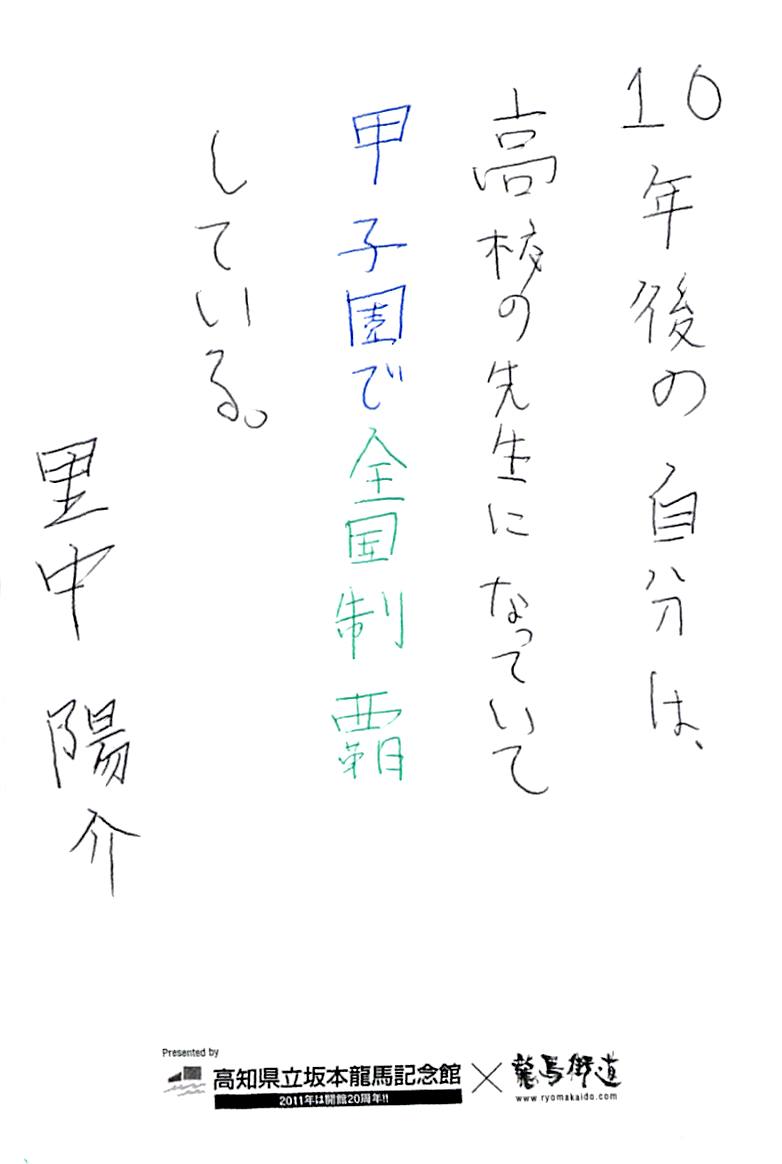 10年後の自分は、
高校の先生になっていて
甲子園で全国制覇
している。
里中 陽介
Presented by
高知県立坂本龍馬記念館 × 龍馬街道
2011年は開館20周年!!
www.ryomakaido.com